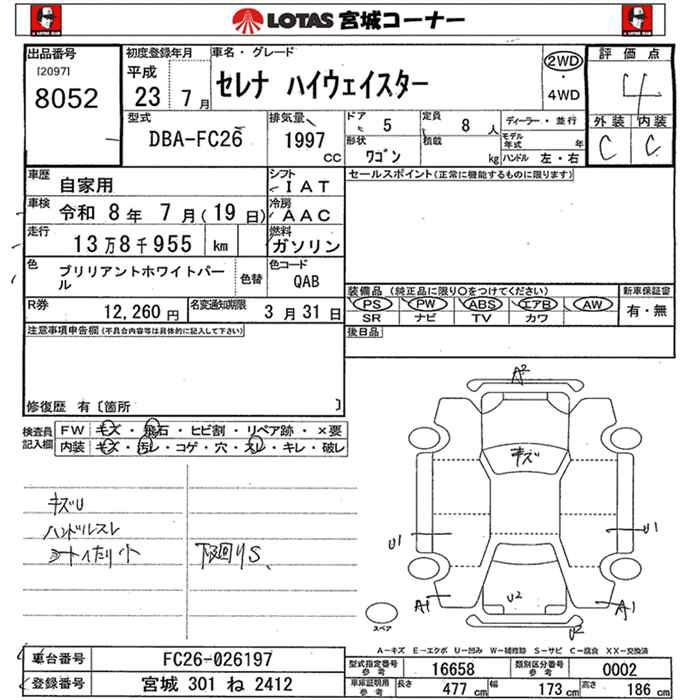 LOTAS 宮城コーナー
出品番号
[2097]
8052
初度登録年月
平成
23 7月
車名・グレード
セレナ ハイウェイスター
2WD
・
4WD
評価点
4
外装 内装
C C
型式
DBA-FC26
排気量
1997
CC
ドア
5
定員
8 人
形状
ワゴン
積載
kg
ディーラー・並行
モデル年式 年
ハンドル 左・右
車歴
自家用
シフト
IAT
車検
令和 8年 7月(19日)
冷房
AAC
走行
13万8千955 km
燃料
ガソリン
色
ブリリアントホワイトパール
色替
色コード
QAB
R券
12,260 円
名変通知期限
3月31日
セールスポイント(正常に機能するものに限ります)
装備品 (純正品に限り○をつけてください)
新車保証書
PS PW ABS エアB AW
SR ナビ TV カワ
有・無
後日品
注意事項申告欄(不具合内容等は具体的に記入して下さい)
修復歴 有〔箇所 〕
検査員記入欄
FW キズ・飛石・ヒビ割・リペア跡・×要
内装 キズ・汚レ・コゲ・穴・スレ・キレ・破レ
キズU
ハンドルスレ
シートイたり小
下廻りS、
A2
キズ
U1
U1
A1
U2
A1
U2
スペア
A-キズ E-エクボ U-凹み W-補修跡 S-サビ C-腐食 XX-交換済
車台番号
FC26-026197
登録番号
宮城 301 ね 2412
型式指定番号
参考
16658
類別区分番号
参考
0002
車庫証明用
参考
長さ 477 cm
幅 173 cm
高さ 186 cm